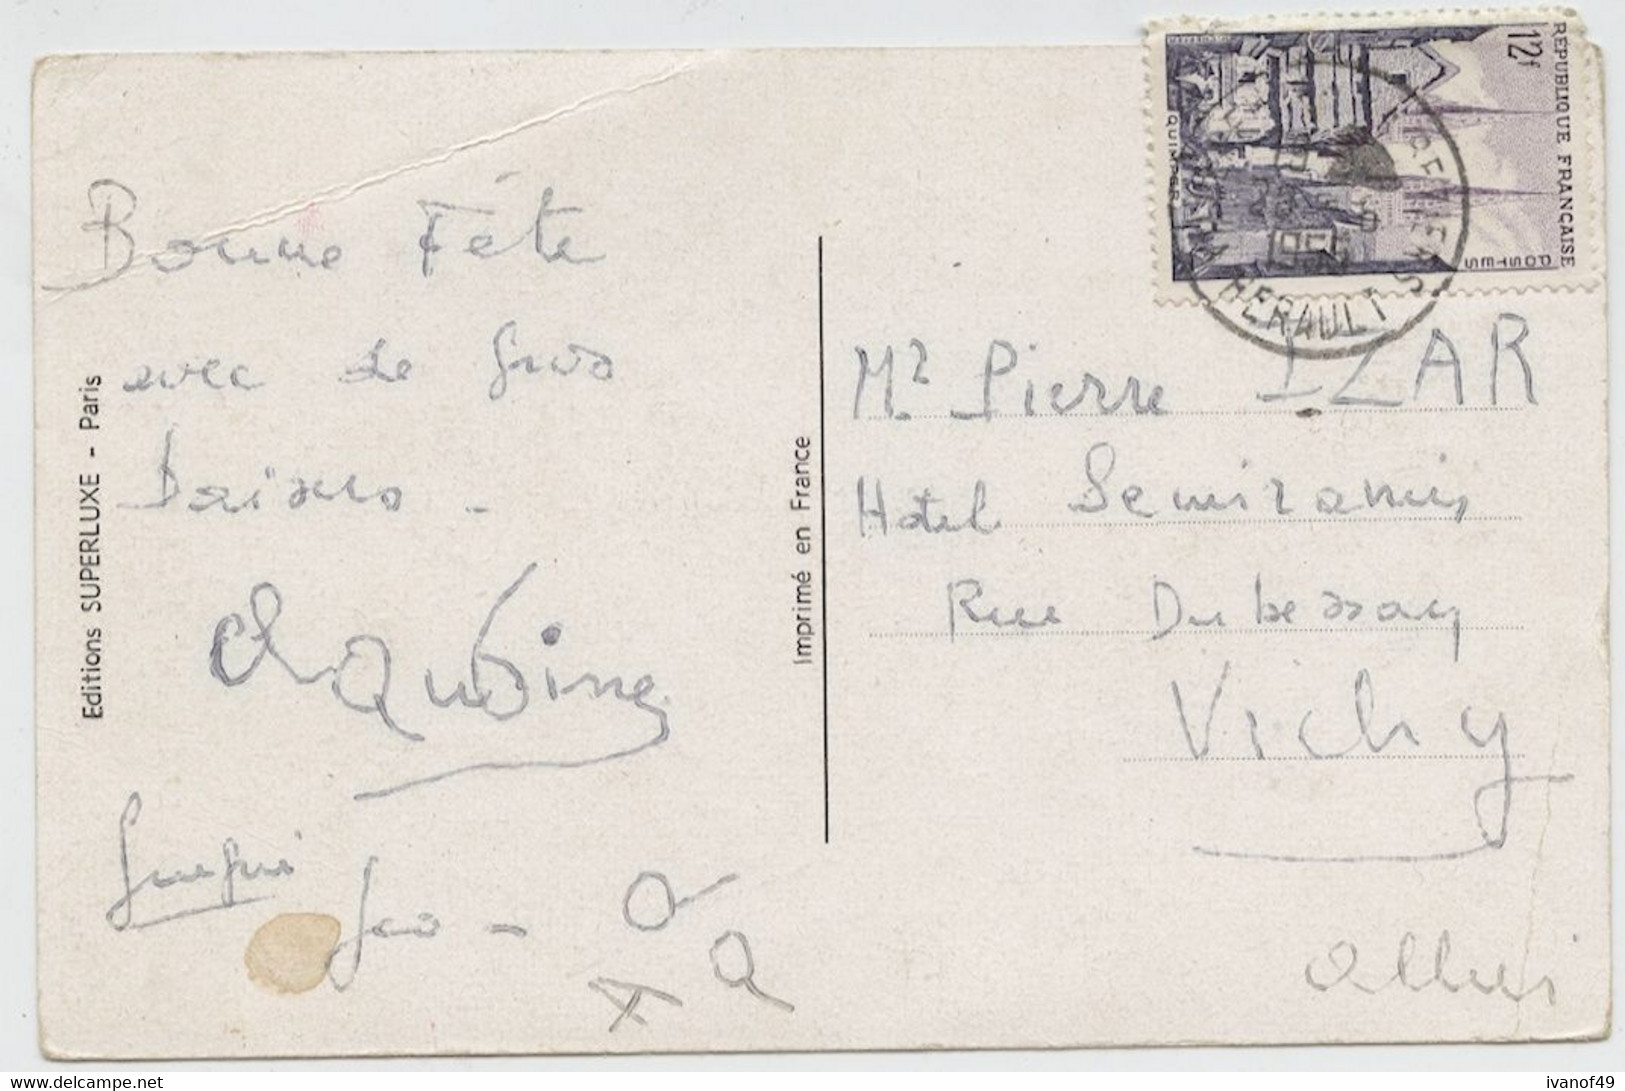 Bonne Fête
avec de gros
Baisers -
Editions SUPERLUXE - Paris
Imprimé en France
REPUBLIQUE FRANÇAISE
POSTES
12f
QUIMPER
BEZIERS
HERAULT
Mr Pierre IZAR
Hotel Semiramis
Rue Dubessay
Vichy
Allier
delcampe.net
ivanof49